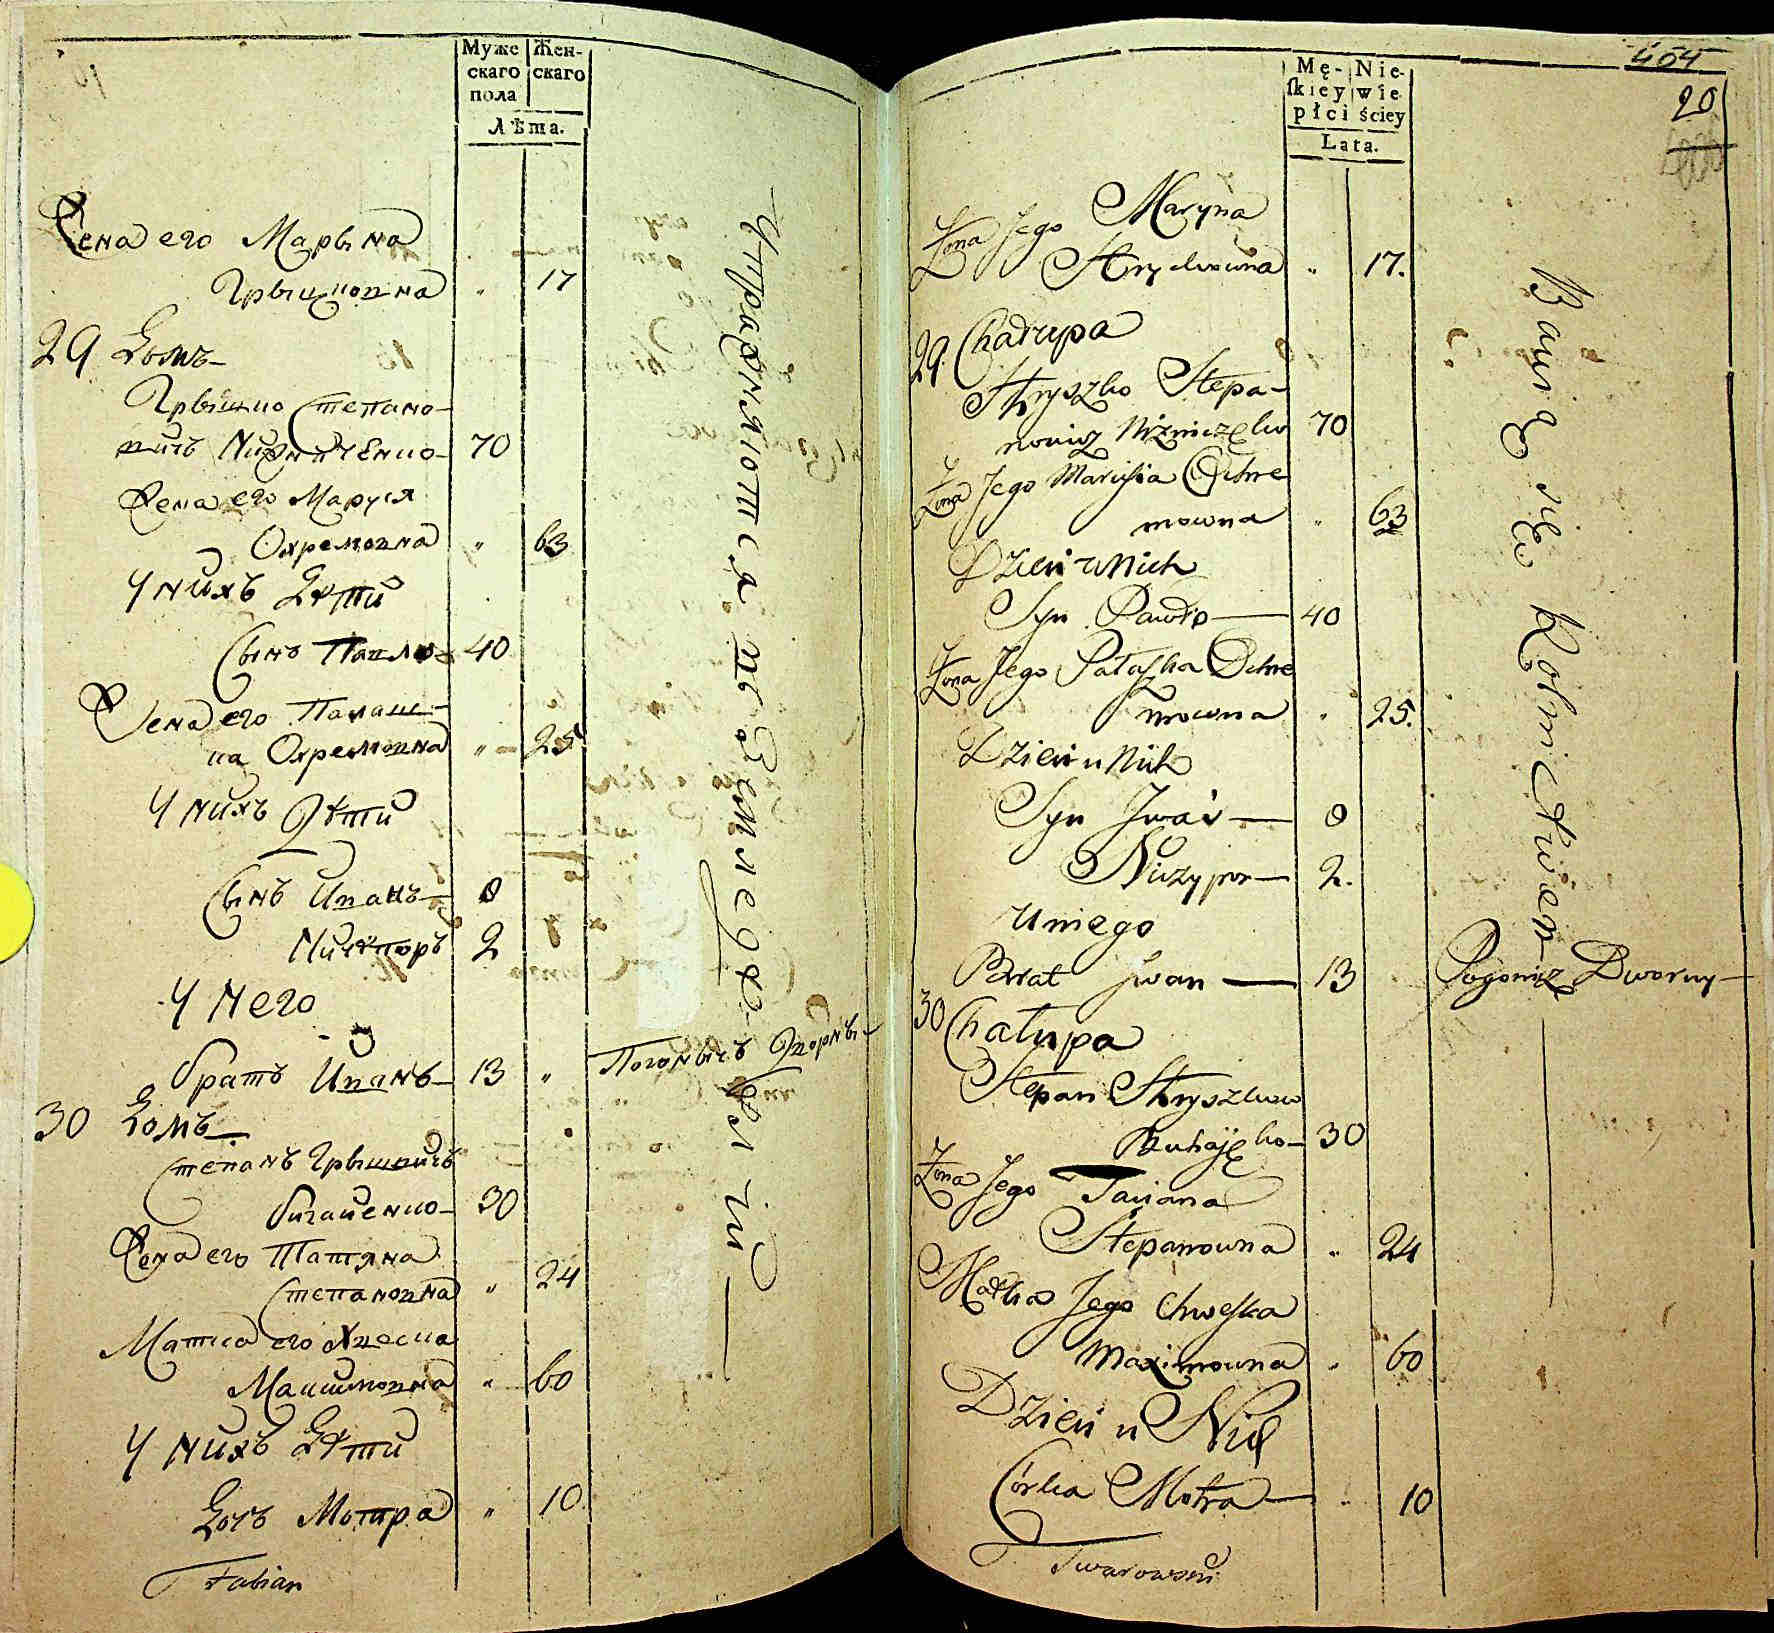 Муже Жен-
скаго скаго
пола
Лѣта.
Жена его Марына
Грыцковна " 17
29 Домъ
Грышко Степано-
вичъ Нижниченко 70
Жена его Маруся
Охремовна " 63
У нихъ Дѣти
Сынъ Павло 40
Жена его Палаш-
ка Охремовна " 25
У нихъ Дѣти
Сынъ Иванъ 8
Ничипоръ 2
У Него
братъ Иванъ 13 " Погонычъ Дворны
30 Домъ
Степанъ Грышковичъ
Бугаенко 30
Жена его Татяна
Степановна " 24
Матка его Хвеска
Максимовна " 60
У нихъ Дѣти
Дочь Мотра " 10
Fabian
Упражняются въ Земледѣліи
404
20
Mę- Nie-
skiey wie
płci ściey
Lata.
Żona Jego Maryna
Hryckowna " 17.
29. Chałupa
Hryszko Stepa-
nowicz Niżniczęko 70
Żona Jego Marusia Ochre
mowna " 63
Dzieci u Nich
Syn Pawło 40
Żona Jego Pałaszka Ochre
mowna " 25.
Dzieci u Nich
Syn Jwan 8
Niczypor 2.
U niego
Brat Jwan 13 Pogonicz Dworny
30 Chałupa
Stepan Hryszkow
Buhaięko 30
Żona Jego Taciana
Stepanowna " 24
Matka Jego Chweska
Maximowna " 60
Dzieci u Nich
Córka Motra " 10
Twarowski
Bawią się Rolnictwem